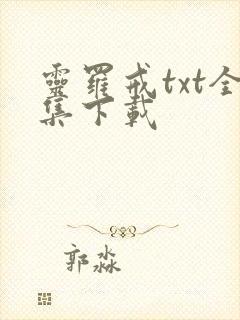 靈羅戒txt全
集下載
郭淼